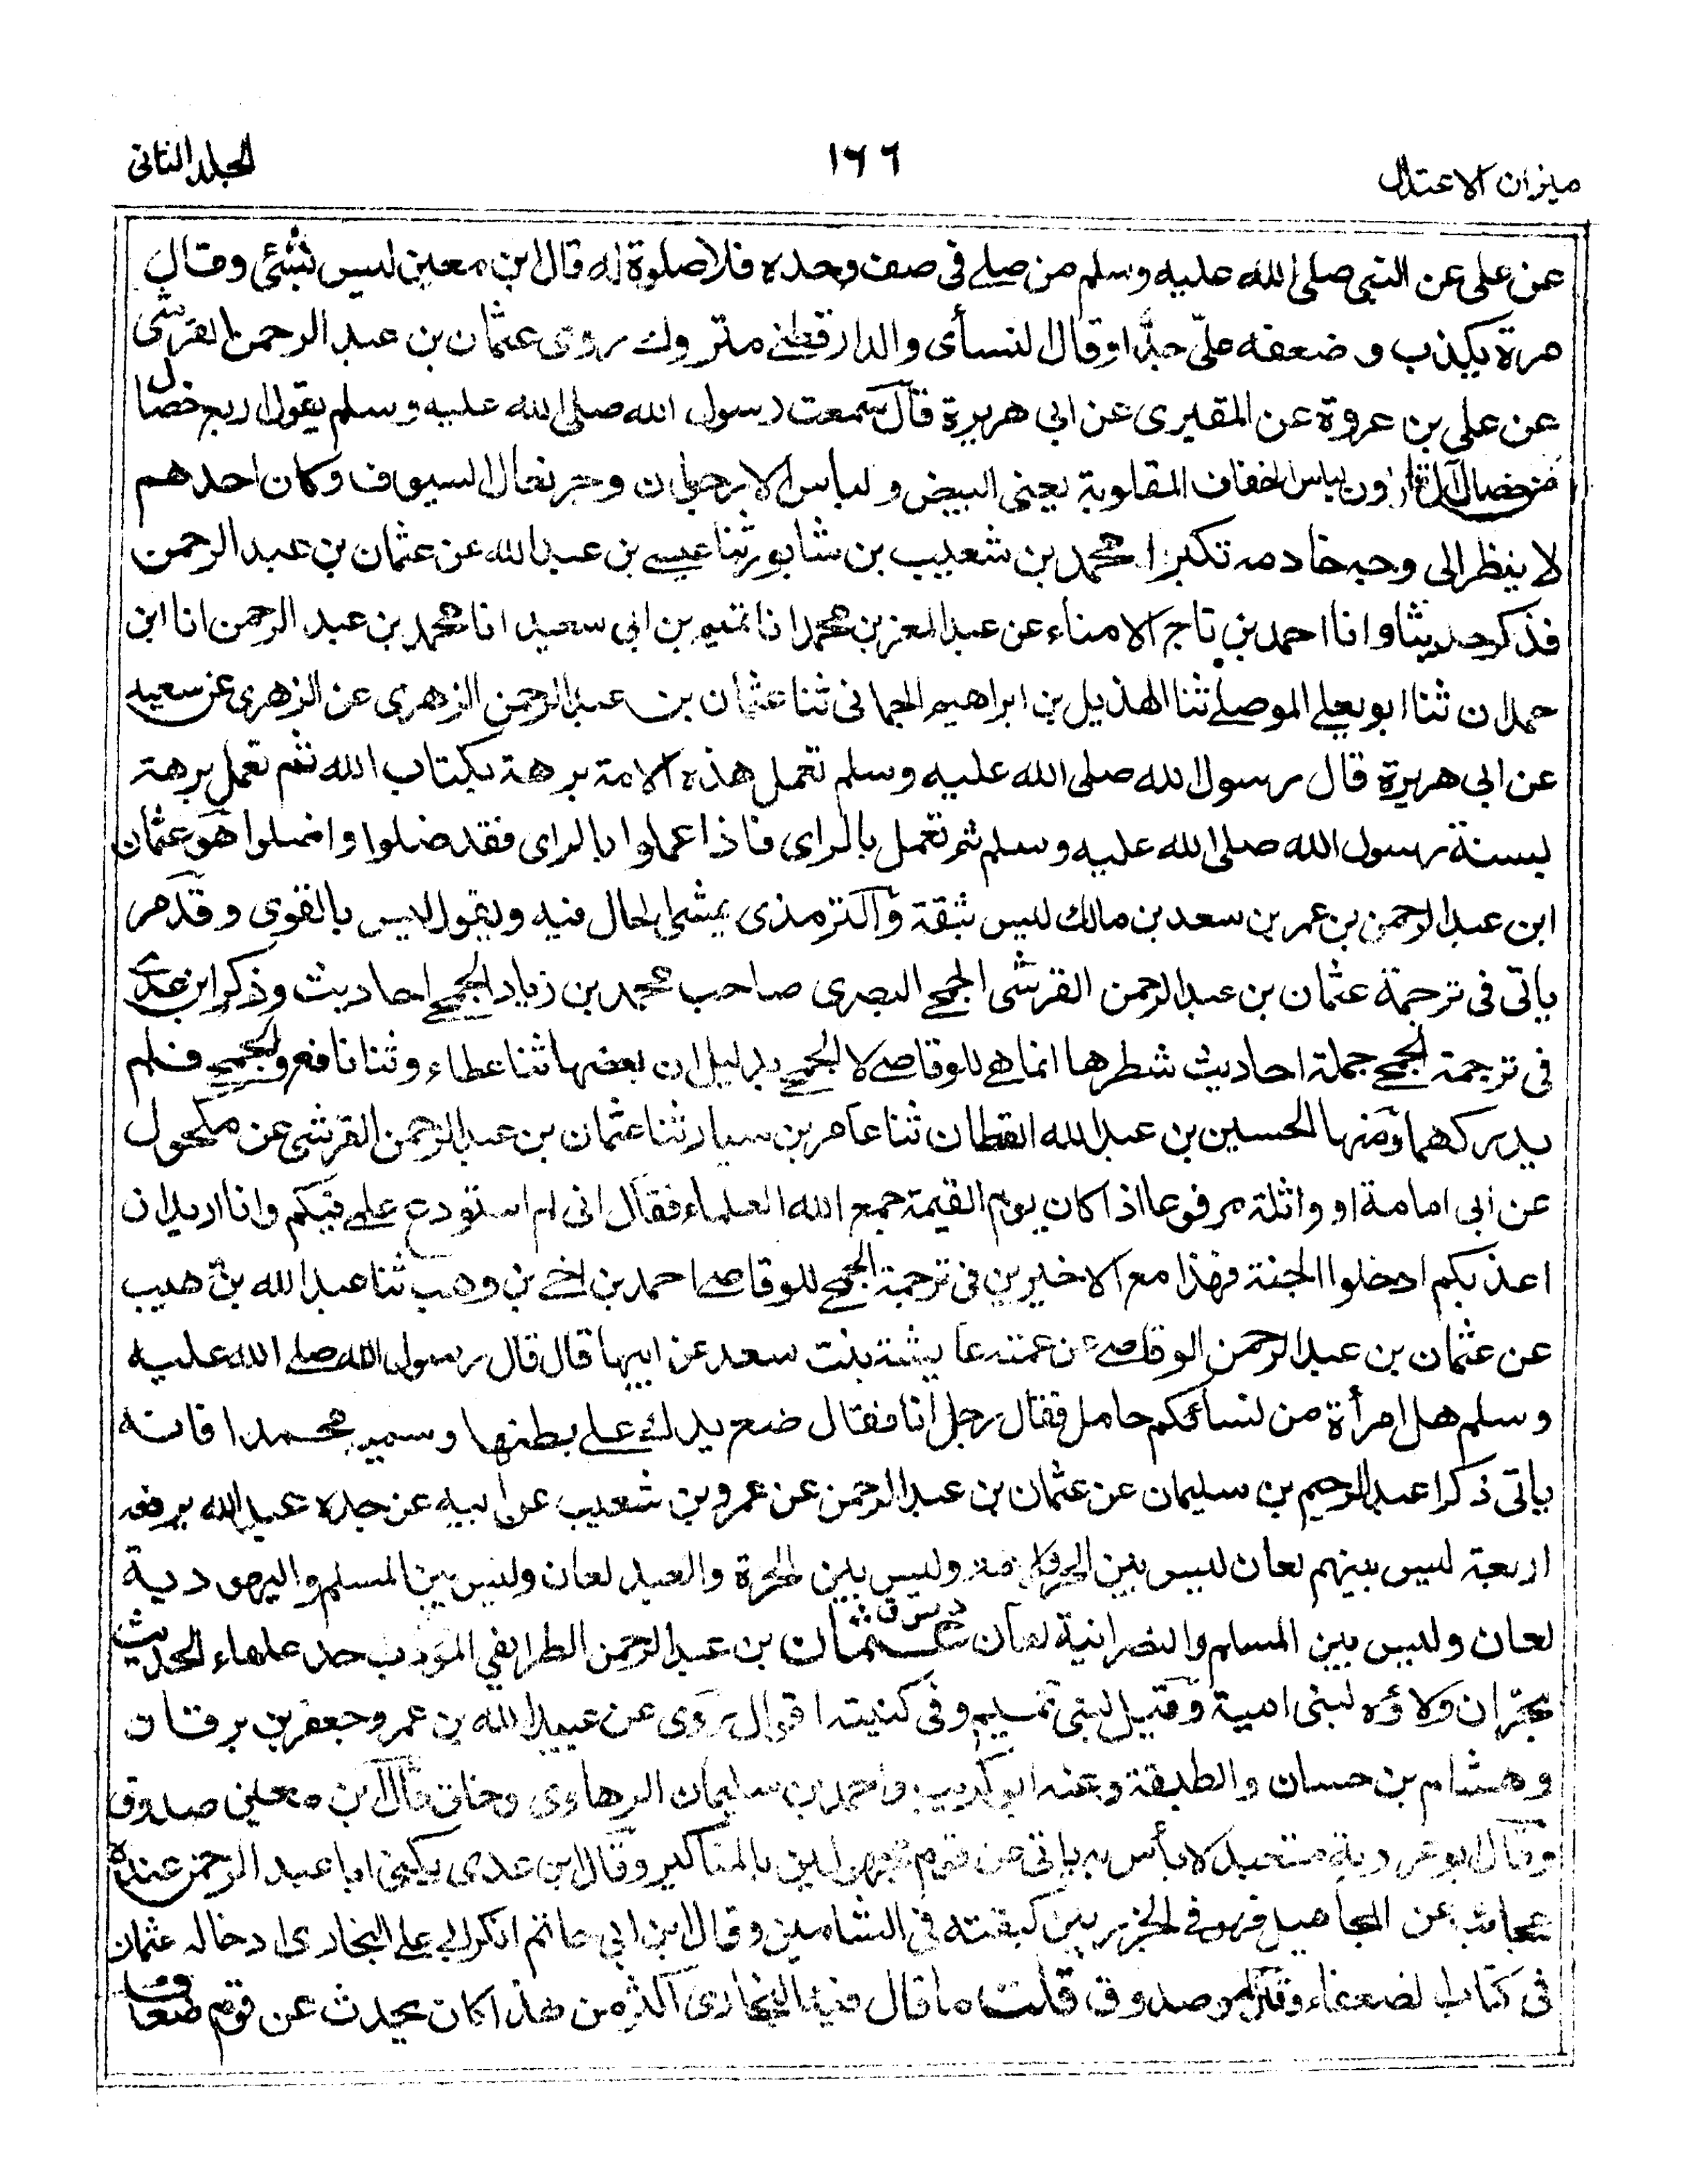 ميزان الاعتدال
١٦٦
الجلد الثانى
عن على عن النبى صلى الله عليه وسلم من صلے فى صف وحده فلا صلوة له قال ابن معين ليس بشئ وقال
مرة يكذب و ضعفه علىّ جدًّا وقال النسأى والدارقطنے متروك روى عثمان بن عبد الرحمن القرشى
عن على بن عروة عن المقبرى عن ابى هريرة قال سمعت رسول الله صلى الله عليه وسلم يقول اربع خصال
من خصال آل قارون لباس الخفاف المقلوبة يعنى البيض و لباس الارجوان وجر نعال السيوف وكان احدهم
لا ينظر الى وجه خادمه تكبرا محمد بن شعيب بن شابور ثنا عيسے بن عبد الله عن عثمان بن عبد الرحمن
فذكر حديثا وانا احمد بن تاج الامناء عن عبد المعز بن محمد انا تميم بن ابى سعيد انا محمد بن عبد الرحمن انا ابن
حمدان ثنا ابو يعلے الموصلے ثنا الهذيل بن ابراهيم الجمانى ثنا عثمان بن عبد الرحمن الزهرى عن الزهرى عن سعيد
عن ابى هريرة قال رسول الله صلى الله عليه وسلم تعمل هذه الامة برهة بكتاب الله ثم تعمل برهة
بسنة رسول الله صلى الله عليه وسلم ثم تعمل بالراى فاذا عملوا بالراى فقد ضلوا واضلوا هو عثمان
ابن عبد الرحمن بن عمر بن سعد بن مالك ليس بثقة والترمذى يمشى الحال فيه ويقول ليس بالقوى وقد مر
ياتى فى ترجمة عثمان بن عبد الرحمن القرشى الجمحے البصرى صاحب محمد بن زياد الجمحے احاديث وذكر ابن عدے
فى ترجمة الجمحے جملة احاديث شطرها انما هے للوقاصے لا الجمحے بدليل ان بعضها ثنا عطاء وثنا نافع والجمحے فلم
يدركهما ومنها الحسين بن عبد الله القطان ثنا عامر بن سيار ثنا عثمان بن عبد الرحمن القرشى عن مكحول
عن ابى امامة او واثلة مرفوعا اذا كان يوم القيمة جمع الله العلماء فقال انى لم استودع علمے فيكم وانا اريد ان
اعذبكم ادخلوا الجنة فهذا مع الاخيرين فى ترجمة الجمحے للوقاصے احمد بن اخے بن وهب ثنا عبد الله بن وهيب
عن عثمان بن عبد الرحمن الوقاصے عن عمته عايشة بنت سعد عن ابيها قال قال رسول الله صلے الله عليه
وسلم هل امرأة من نسائكم حامل فقال رجل انا فقال ضع يدك علے بطنها وسميه محمدا فانه
ياتى ذكرا عبد الرحيم بن سليمان عن عثمان بن عبد الرحمن عن عمرو بن شعيب عن ابيه عن جده عبد الله يرفعه
اربعة ليس بينهم لعان ليس بين الحر والامة وليس بين الحرة والعبد لعان وليس بين المسلم واليهودية
لعان وليس بين المسلم والنصرانية لعان عثمان بن عبد الرحمن الطرايفي المؤدب احد علماء الحديث
بحران ولاؤه لبنى امية وقيل لبنى تميم وفى كنيته اقوال روى عن عبيد الله بن عمر وجعفر بن برقان
وهشام بن حسان والطبقة وعنه ابو كريب واحمد بن سليمان الرهاوى وخلق قال ابن معين صدوق
وقال ابو عروبة متعبد لا بأس به ياتى عن قوم مجهولين بالمناكير وقال ابن عدى يكنى ابا عبد الرحمن عنده
عجائب عن المجاهيل فهو فے الجزريين كبقية فى الشاميين وقال ابن ابى حاتم انكر ابى على البخارى ادخاله عثمان
فى كتاب الضعفاء وقال هو صدوق قلت ما قال فيه البخارى اكثر من هذا كان يحدث عن قوم ضعاف